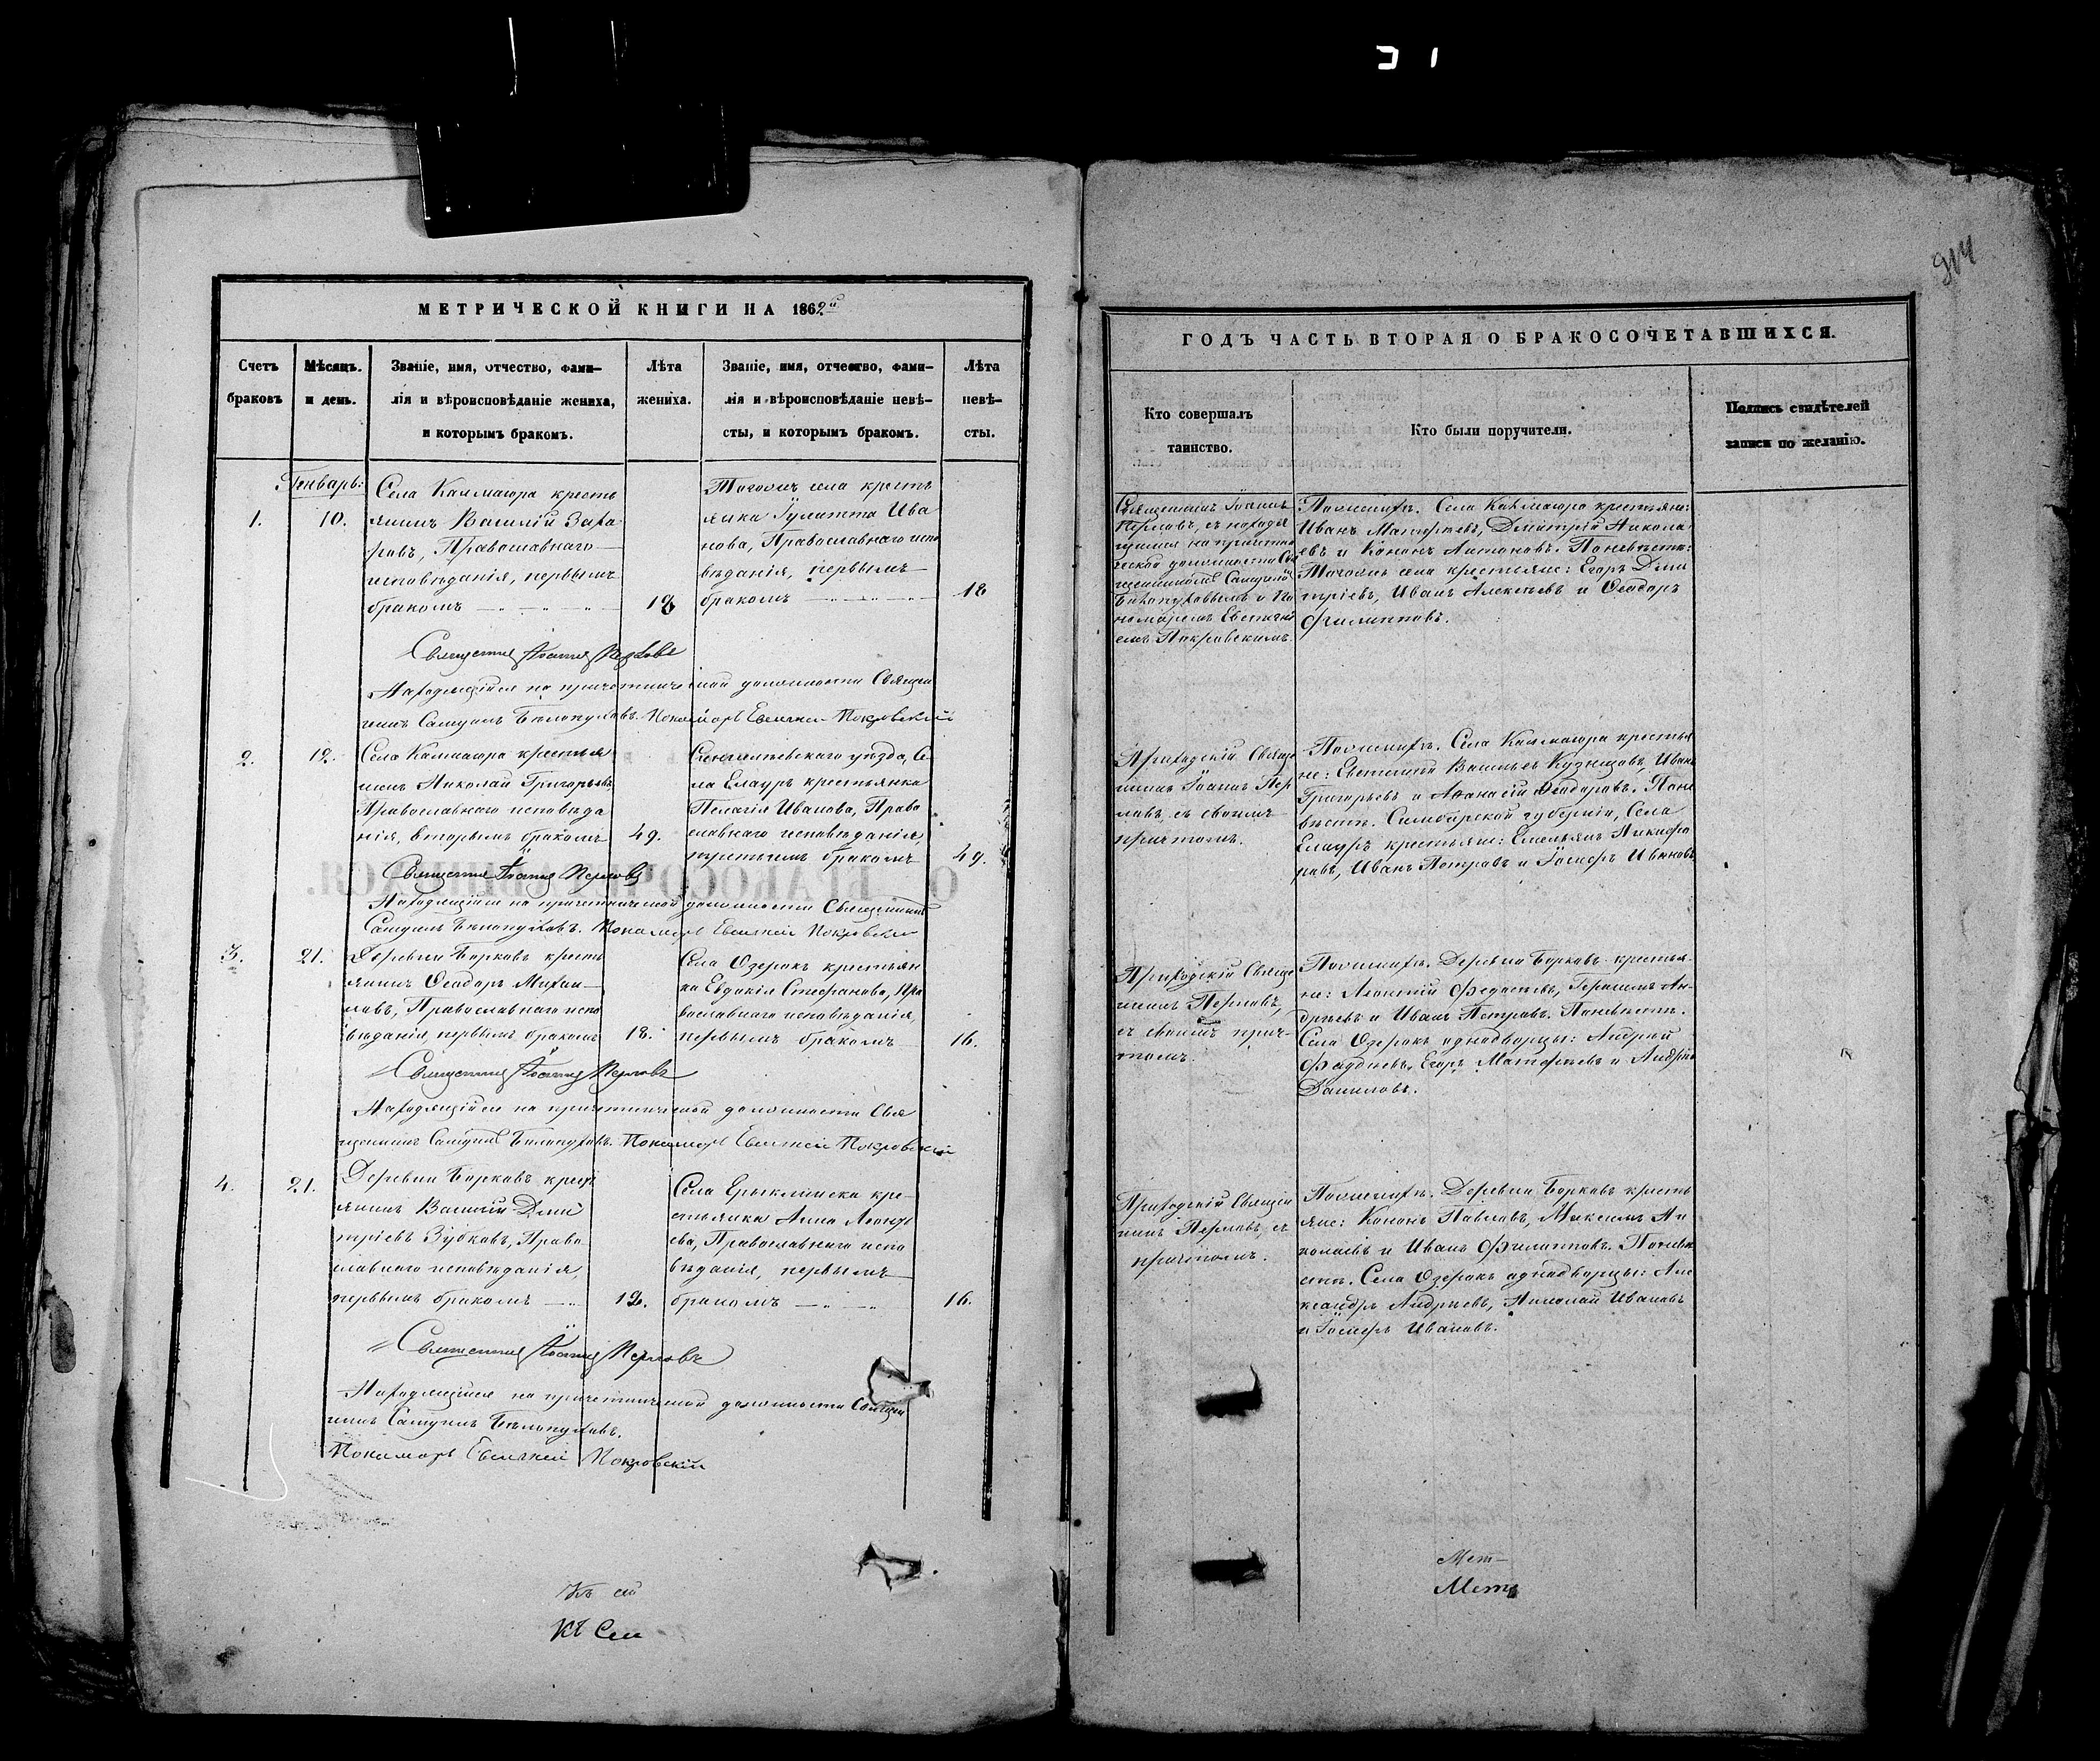 914
МЕТРИЧЕСКОЙ КНИГИ НА 1862й
Счетъ браковъ
Мѣсяцъ и день.
Званіе, имя, отчество, фами-
лія и вѣроисповѣданіе жениха,
и которымъ бракомъ.
Лѣта
жениха.
Званіе, имя, отчество, фами-
лія и вѣроисповѣданіе невѣ-
сты, и которымъ бракомъ.
Лѣта
невѣ-
сты.
Генварь:
1.
10.
Села Калмаюра кресть
янинъ Василій Заха
ровъ, Православнаго
исповѣданія, первымъ
бракомъ
18
Тогожъ села кресть
янка Іулитта Ива
нова, Православнаго испо
вѣданія, первымъ
бракомъ
18
Священникъ Іоаннъ Перловъ
Находящійся на причетнической должности Священ
никъ Самуилъ Бѣлопуховъ. Пономарь Евгеній Покровскій
2.
12.
Села Калмаюра крестья
нинъ Николай Григорьевъ
Православнаго исповѣда
нія, вторымъ бракомъ
49.
Сенгилѣевскаго уѣзда, Се
ла Елауръ крестьянка
Пелагія Иванова, Право
славнаго исповѣданія,
третьимъ бракомъ
49.
Священникъ Іоаннъ Перловъ
Находящійся на причетнической должности Священникъ
Самуилъ Бѣлопуховъ. Пономарь Евгеній Покровскій
3.
21.
Деревни Борковъ кресть
янинъ Ѳеодоръ Михаи
ловъ, Православнаго испо
вѣданія, первымъ бракомъ
18.
Села Озерокъ крестьян
ка Евдокія Стефанова, Пра
вославнаго исповѣданія,
первымъ бракомъ
16.
Священникъ Іоаннъ Перловъ
Находящійся на причетнической должности Свя
щенникъ Самуилъ Бѣлопуховъ. Пономарь Евгеній Покровскій
4.
21.
Деревни Борковъ крест
янинъ Василій Дми
тріевъ Зубковъ, Право
славнаго исповѣданія,
первымъ бракомъ
Села Ерыклинска кре-
стьянка Анна Леонть
ева, Православнаго испо
вѣданія, первымъ
бракомъ
16.
Священникъ Іоаннъ Перловъ
Находящійся на причетнической должности Священ
никъ Самуилъ Бѣлопуховъ.
Пономарь Евгеній Покровскій
Къ сей
Къ Сей
ГОДЪ ЧАСТЬ ВТОРАЯ О БРАКОСОЧЕТАВШИХСЯ.
Кто совершалъ
таинство.
Кто были поручители.
Подпись свидѣтелей
записи по желанію.
Священникъ Іоаннъ
Перловъ, съ находя
щимся на причетни
ческой должности Свя
щенникомъ Самуиломъ
Бѣлопуховымъ и По
номаремъ Евгені
емъ Покровскимъ.
По женихѣ. Села Калмаюра крестьяне:
Иванъ Матфеевъ, Дмитрій Никола
евъ и Кононъ Антоновъ. По невѣстѣ:
Тогожъ села крестьяне: Егоръ Дми
тріевъ, Иванъ Алексѣевъ и Ѳеодоръ
Филипповъ.
Приходскій Священ
никъ Іоаннъ Пер
ловъ, съ своимъ
причтомъ.
По женихѣ. Села Калмаюра крестья
не: Евгеній Васильевъ Кузнецовъ, Иванъ
Григорьевъ и Аѳанасій Ѳеодоровъ. По не
вѣстѣ. Симбирской губерніи, Села
Елауръ крестьяне: Емельянъ Никифо
ровъ, Иванъ Петровъ и Іосифъ Ивановъ
Приходскій Священ
никъ Перловъ,
съ своимъ прич-
томъ.
По женихѣ. Деревни Борковъ крестья-
не: Леонтій Федотовъ, Герасимъ Ан-
дреевъ и Иванъ Петровъ. По невѣстѣ.
Села Озерокъ однодворцы: Андрей
Фаддеевъ, Егоръ Матфеевъ и Андрей
Даниловъ.
Приходскій Священ
никъ Перловъ, съ
причтомъ.
По женихѣ. Деревни Борковъ кресть
яне: Кононъ Павловъ, Максимъ Ни
колаевъ и Иванъ Филипповъ. По невѣ
стѣ. Села Озерокъ однодворцы: Але
ксандръ Андреевъ, Николай Ивановъ
и Іосифъ Ивановъ.
Мет-
Метр